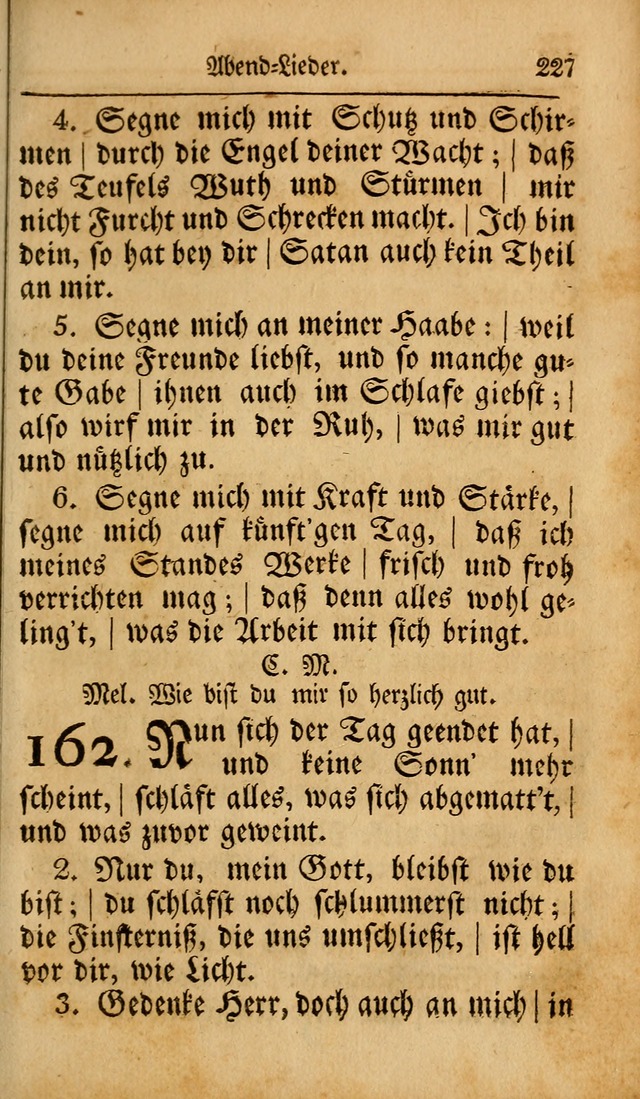 Abend-Lieder. 227
4. Segne mich mit Schutz und Schir-
men | durch die Engel deiner Wacht; | daß
des Teufels Wuth und Stürmen | mir
nicht Furcht und Schrecken macht. | Ich bin
dein, so hat bey dir | Satan auch kein Theil
an mir.
5. Segne mich an meiner Haabe: | weil
du deine Freunde liebst, und so manche gu-
te Gabe | ihnen auch im Schlafe giebst; |
also wirf mir in der Ruh, | was mir gut
und nützlich zu.
6. Segne mich mit Kraft und Stärke, |
segne mich auf künft'gen Tag, | daß ich
meines Standes Werke | frisch und froh
verrichten mag; | daß denn alles wohl ge-
ling't, | was die Arbeit mit sich bringt.
C. M.
Mel. Wie bist du mir so herzlich gut.
162. Nun sich der Tag geendet hat, |
und keine Sonn' mehr
scheint, | schläft alles, was sich abgematt't, |
und was zuvor geweint.
2. Nur du, mein Gott, bleibst wie du
bist; | du schläfst noch schlummerst nicht; |
die Finsterniß, die uns umschließt, | ist hell
vor dir, wie Licht.
3. Gedenke Herr, doch auch an mich | in